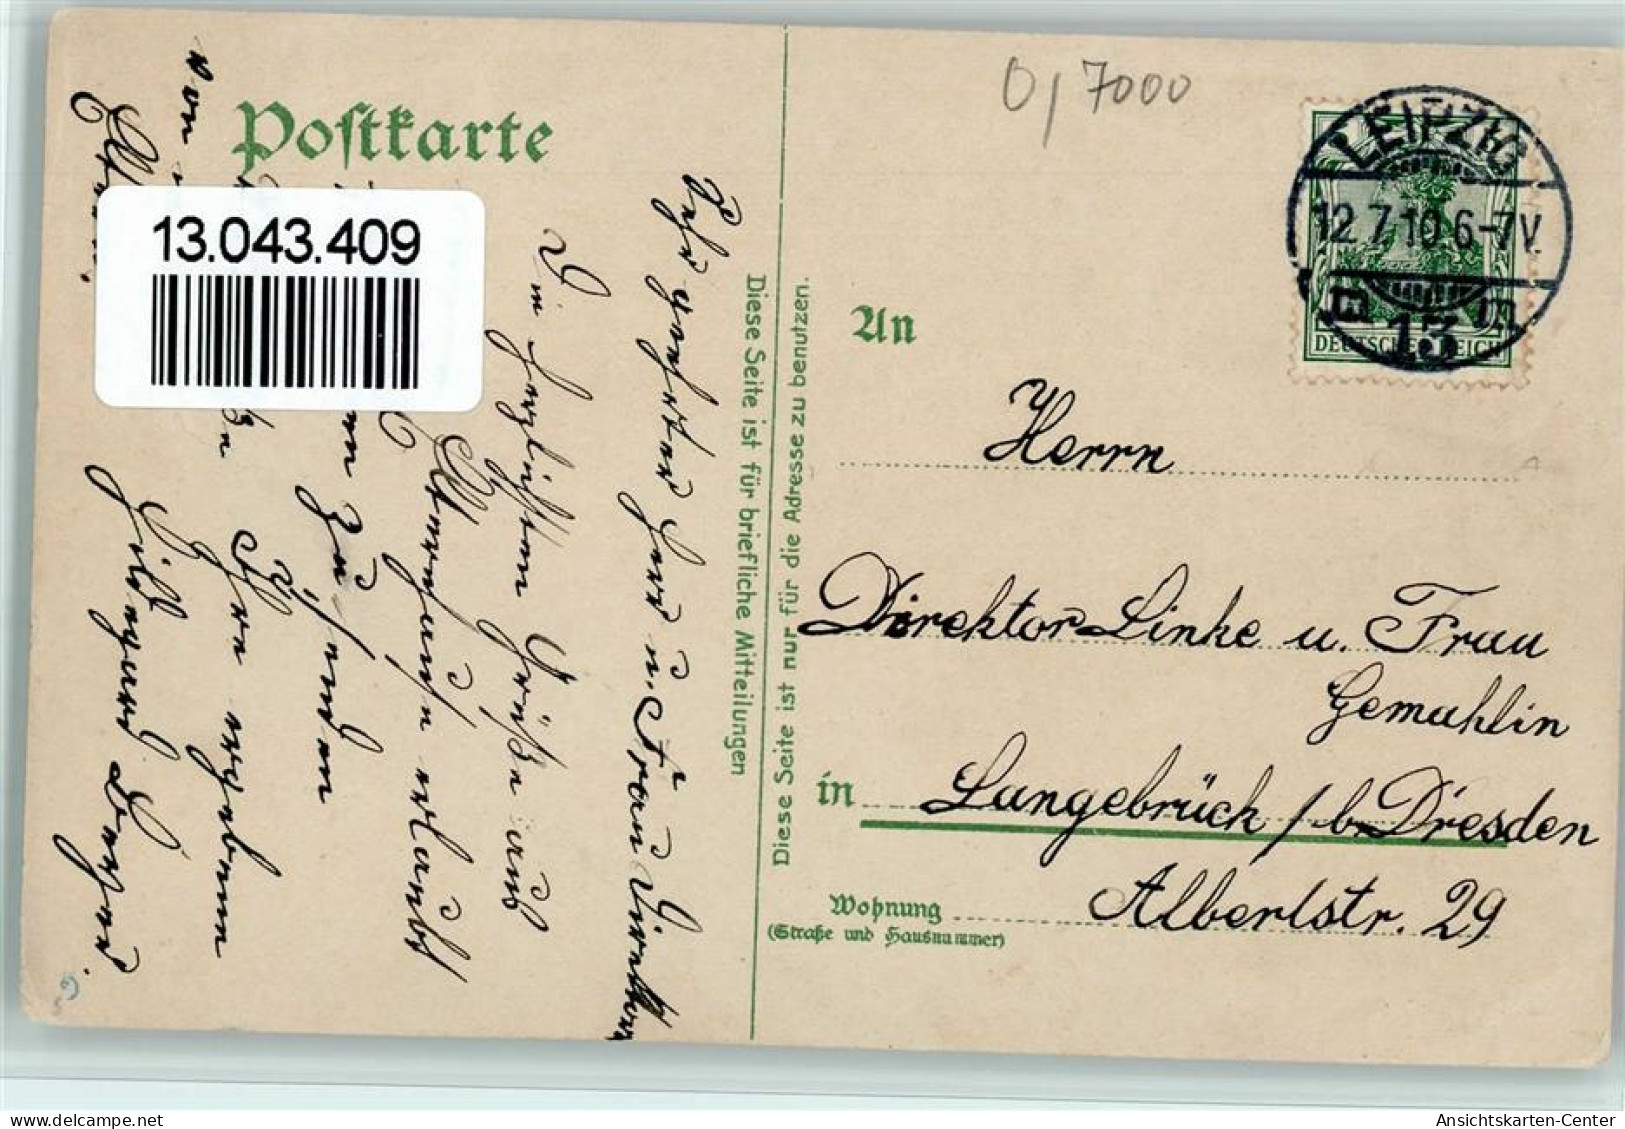 Postkarte
13.043.409
0,7000
LEIPZIG
12.7.10.6-7V.
13
DEUTSCHES REICH
An
Herrn
Direktor Linke u. Frau
Gemahlin
in Langebrück / b. Dresden
Wohnung Albertstr. 29
(Straße und Hausnummer)
Diese Seite ist nur für die Adresse zu benutzen.
Diese Seite ist für briefliche Mitteilungen
Sehr geehrter Herr u. Frau Direktor
Die herzlichsten Grüße aus
erlaubt
zu senden
Ihre ergebene
Hildegard
Ansichtskarten-Center